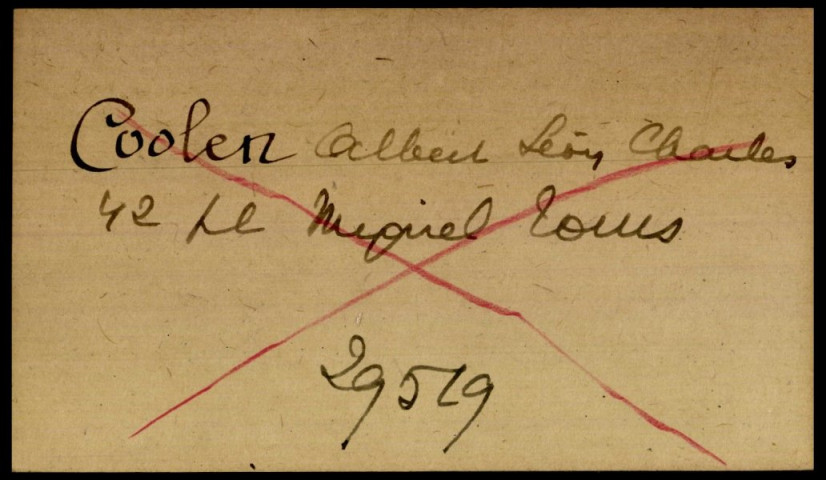 Coolen Albert Léon Charles
42 pl Miguel Torres
29519